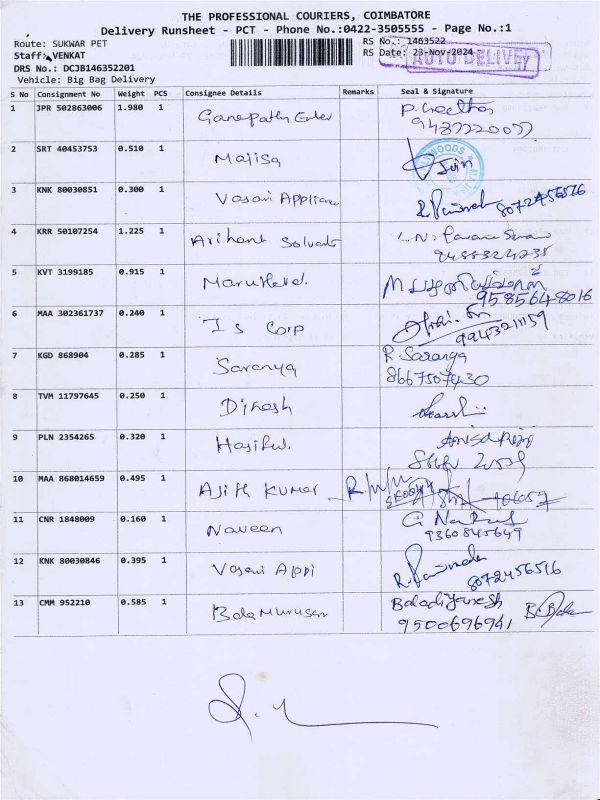 THE PROFESSIONAL COURIERS, COIMBATORE
Delivery Runsheet - PCT - Phone No.:0422-3505555 - Page No.:1
Route: SUKWAR PET
RS No.: 1463522
Staff: VENKAT
RS Date: 23-Nov-2024
AUTO DELIVERY
DRS No.: DCJB146352201
Vehicle: Big Bag Delivery
S No Consignment No Weight PCS Consignee Details Remarks Seal & Signature
1 JPR 502863006 1.980 1 Ganapathy
2 SRT 40453753 0.510 1 Majisa
3 KNK 80030851 0.300 1 Vasavi Appliance 8072456516
4 KRR 50107254 1.225 1 Arihant
5 KVT 3199185 0.915 1 9585648016
6 MAA 302361737 0.240 1 I S Corp 9943211159
7 KGD 868904 0.285 1 Saranya R. Saranya
8667507430
8 TVM 11797645 0.250 1 Dinesh
9 PLN 2354265 0.320 1
10 MAA 868014659 0.495 1 Ajith Kumar
11 CNR 1848009 0.160 1 Naveen
9360845649
12 KNK 80030846 0.395 1 Vasavi Appi 8072456516
13 CMM 952210 0.585 1 Bala Murugan
9500696941